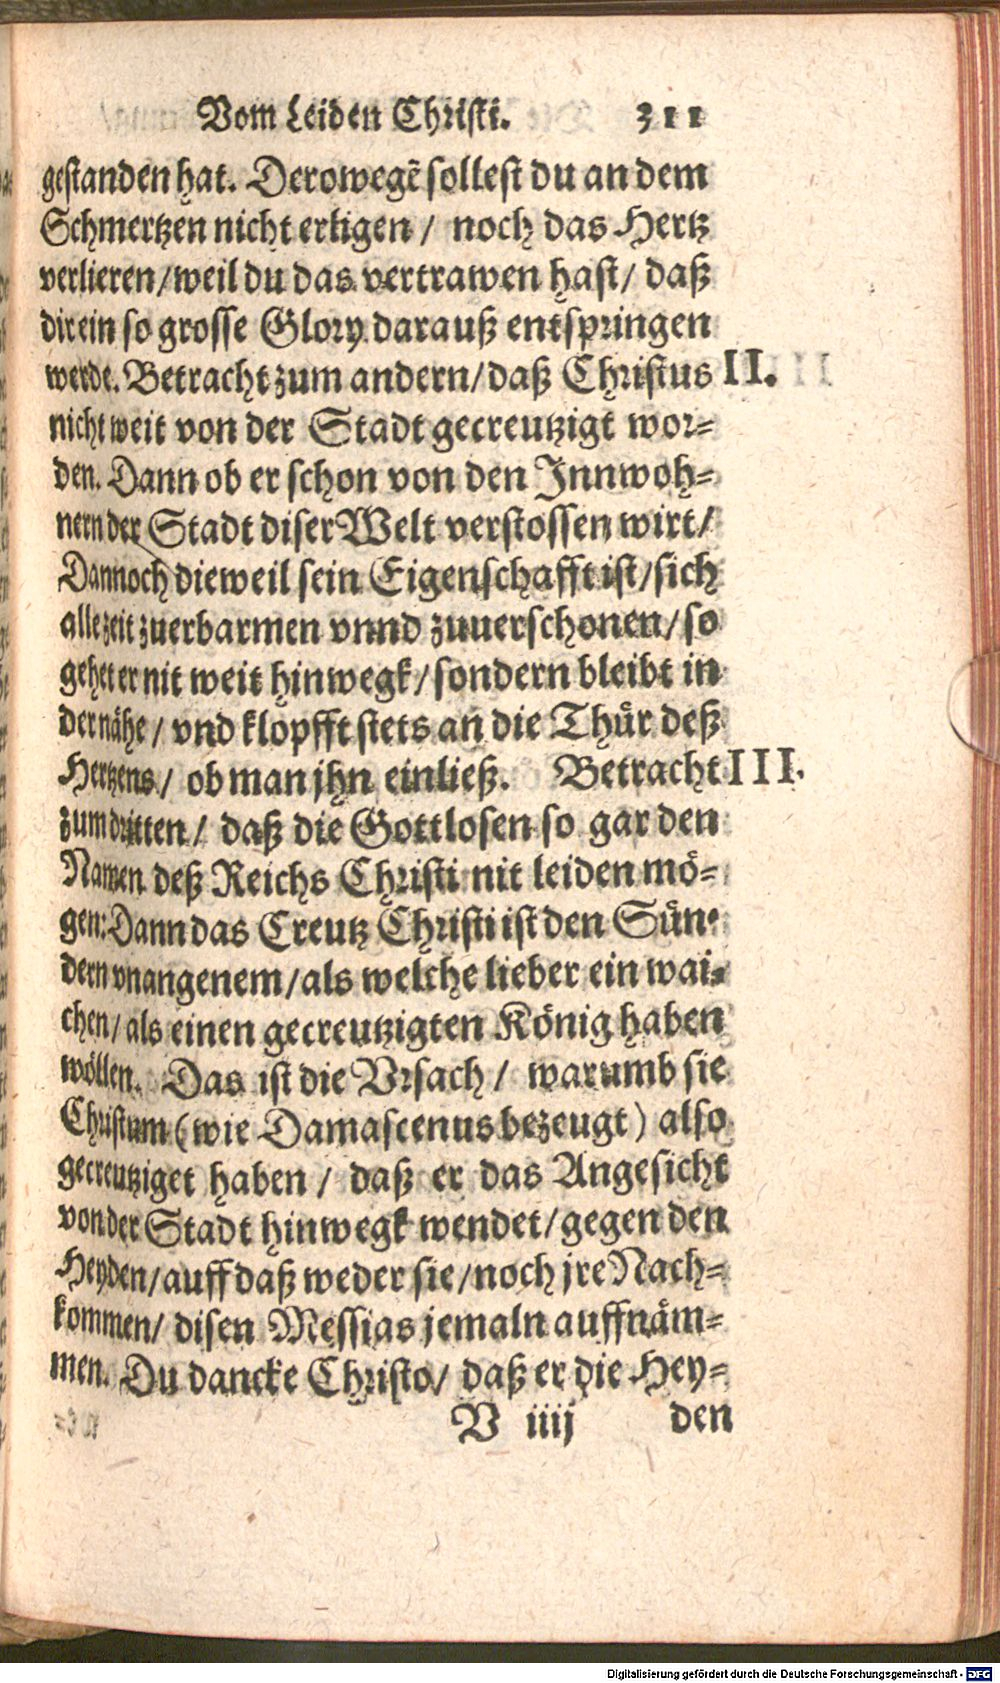 Vom Leiden Christi. 311
gestanden hat. Derowegẽ sollest du an dem
Schmertzen nicht erligen / noch das Hertz
verlieren / weil du das vertrawen hast / daß
dir ein so grosse Glory darauß entspringen
werde. Betracht zum andern / daß Christus II.
nicht weit von der Stadt gecreutzigt wor-
den. Dann ob er schon von den Innwoh-
nern der Stadt diser Welt verstossen wirt /
Dannoch dieweil sein Eigenschafft ist / sich
allezeit zuerbarmen vnnd zuuerschonen / so
gehet er nit weit hinwegk / sondern bleibt in
der nähe / vnd klopfft stets an die Thür deß
Hertzens / ob man jhn einließ. Betracht III.
zum dritten / daß die Gottlosen so gar den
Namen deß Reichs Christi nit leiden mö-
gen: Dann das Creutz Christi ist den Sün-
dern vnangenem / als welche lieber ein wai-
chen / als einen gecreutzigten König haben
wöllen. Das ist die Vrsach / warumb sie
Christum (wie Damascenus bezeugt) also
gecreutziget haben / daß er das Angesicht
von der Stadt hinwegk wendet / gegen den
Heyden / auff daß weder sie / noch jre Nach-
kommen / disen Messias jemaln auffnäm-
men. Du dancke Christo / daß er die Hey-
V iiij den
Digitalisierung gefördert durch die Deutsche Forschungsgemeinschaft - DFG